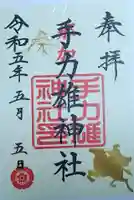 奉拝
手力雄神社
手力雄神社印
令和五年五月五日